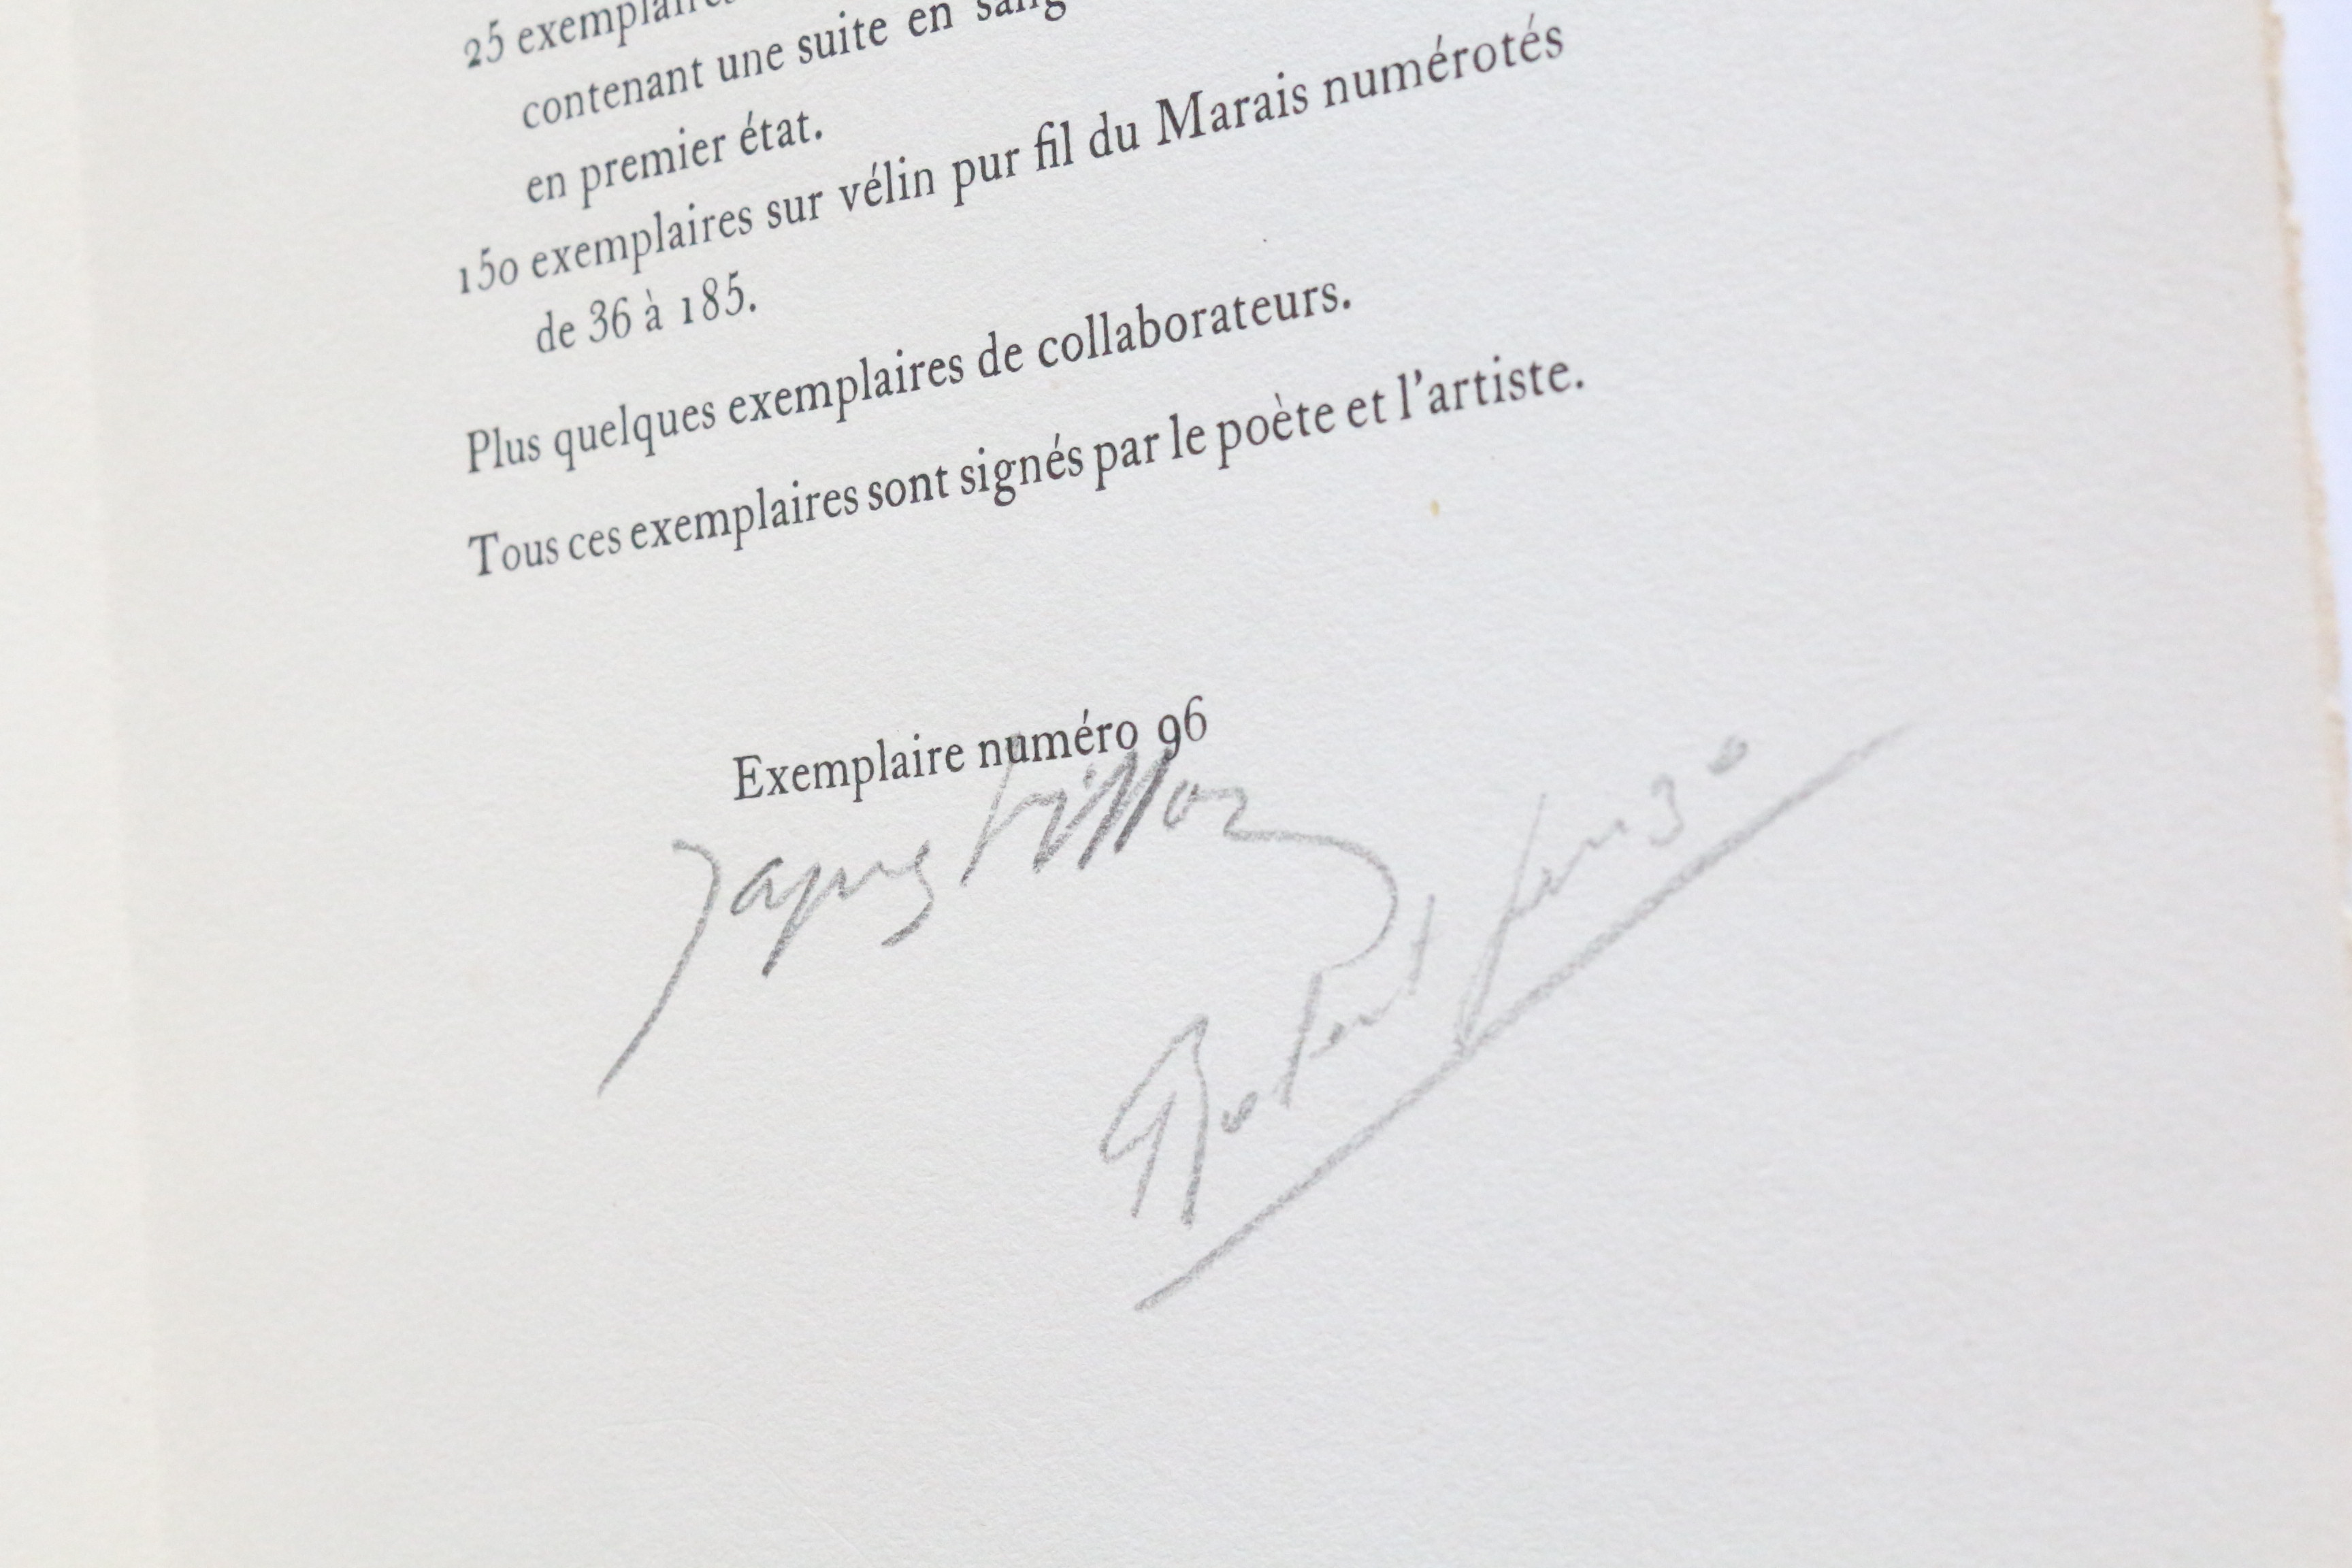 25 exemplaires
contenant une suite en
en premier état.
150 exemplaires sur vélin pur fil du Marais numérotés
de 36 à 185.
Plus quelques exemplaires de collaborateurs.
Tous ces exemplaires sont signés par le poète et l'artiste.
Exemplaire numéro 96
Jacques Villon